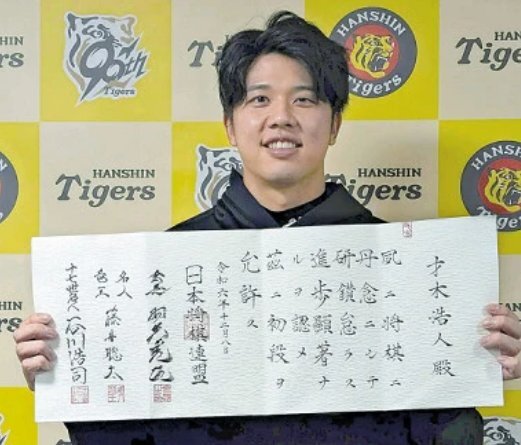 HANSHIN
Tigers
95th
Tigers
HANSHIN
Tigers
HANSHIN
Tigers
HANSHIN
Tigers
HANSHIN
Tigers
才木浩人殿
夙ニ将棋ニ
丹念ニシテ
研鑚怠ラス
進歩顕著ナ
ルヲ認メ
茲ニ初段ヲ
允許ス
令和六年十二月八日
日本将棋連盟
会長 羽生善治
名人
竜王 藤井聡太
十七世名人 谷川浩司